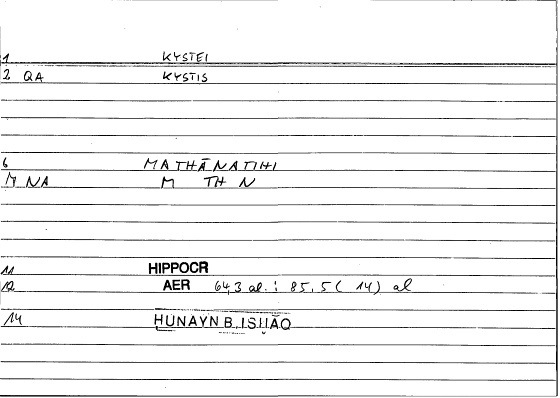 1 KYSTEI
2 QA KYSTIS
6 MATHĀNATIHI
M NA M TH N
11 HIPPOCR
12 AER 64,3 al. : 85,5 ( 14) al
14 HUNAYN B. ISḤĀQ